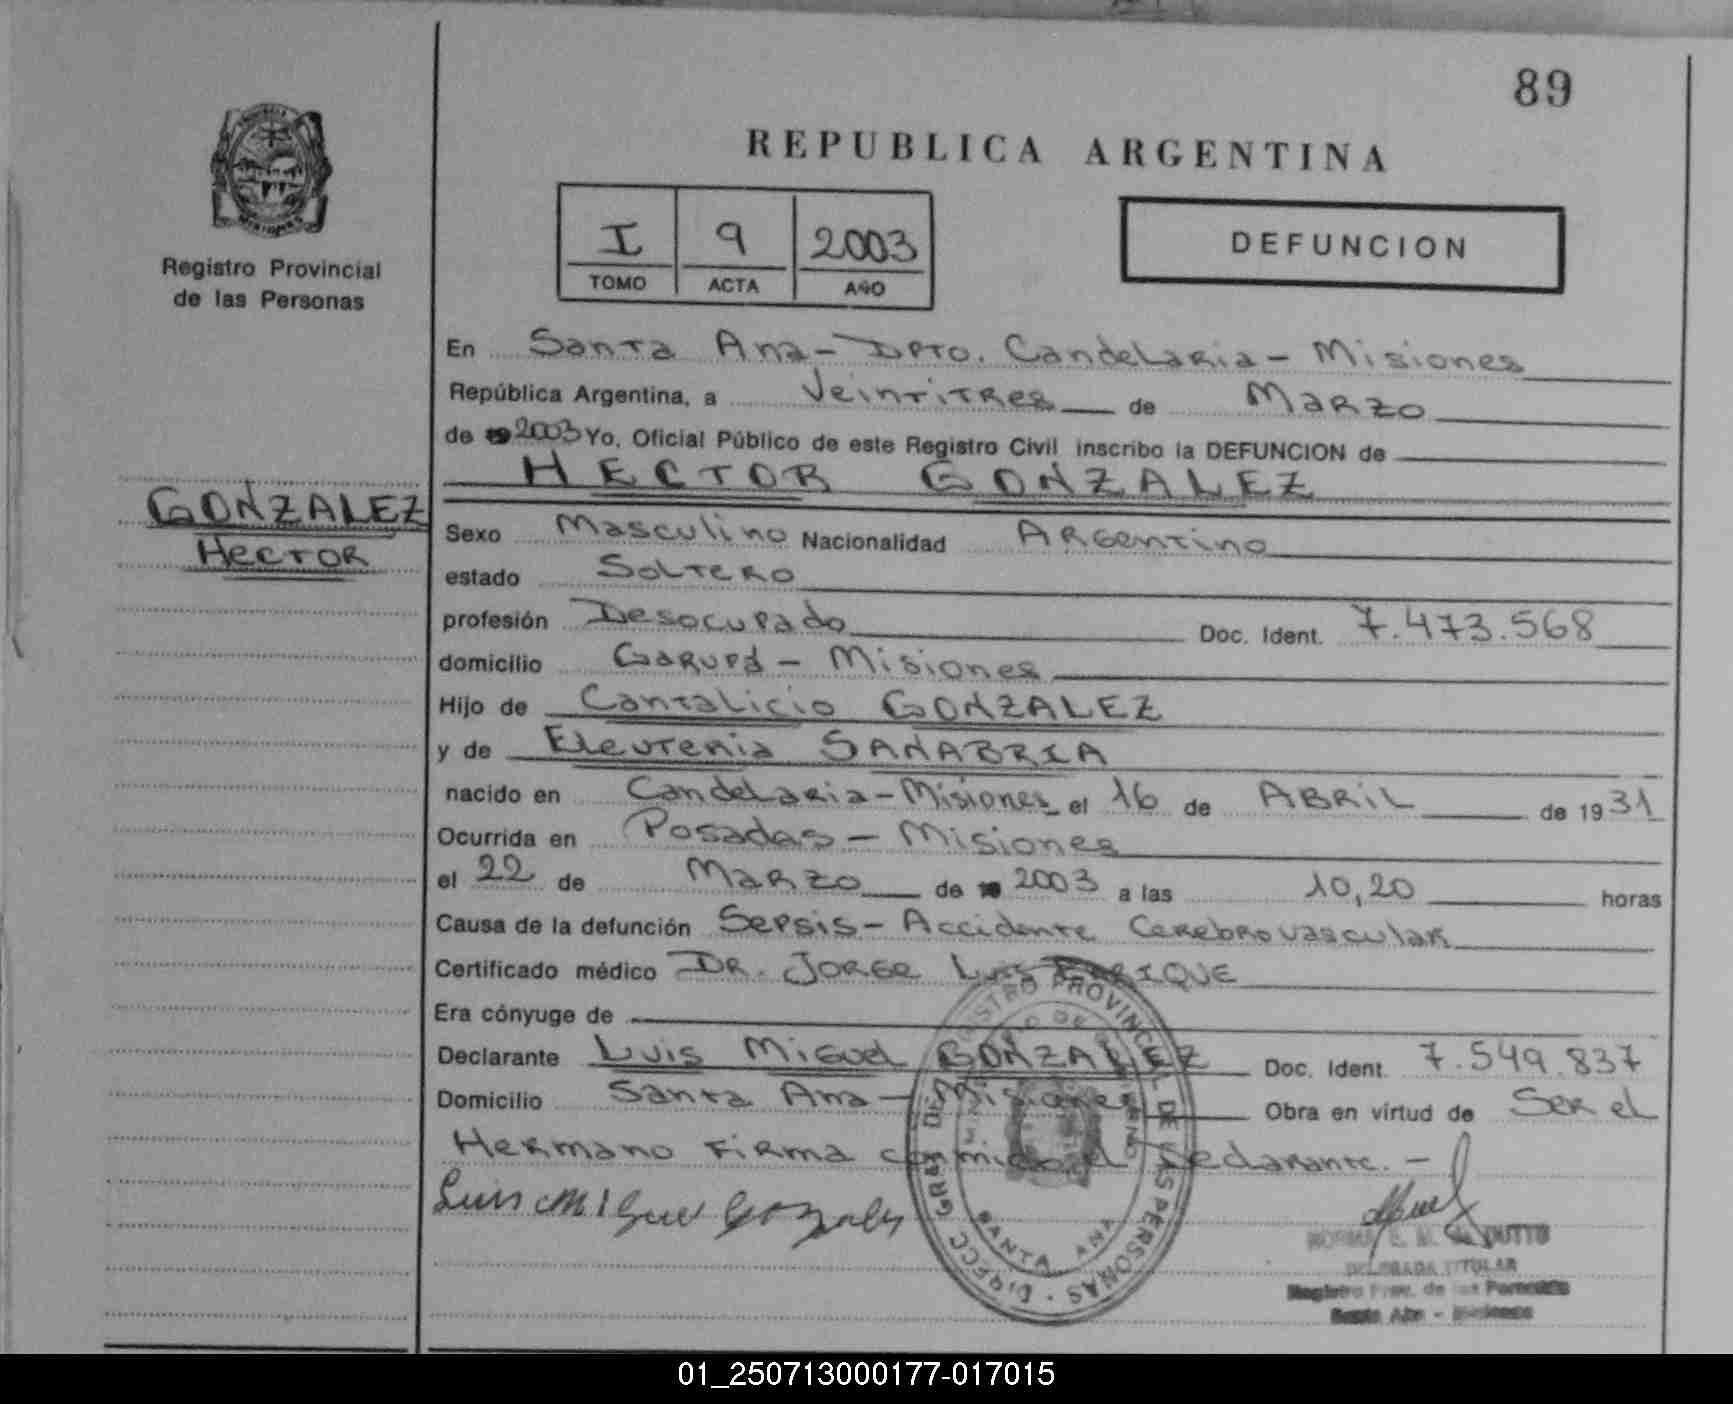 89
REPUBLICA ARGENTINA
MISIONES
Registro Provincial
de las Personas
I 9 2003
TOMO ACTA AÑO
DEFUNCION
GONZALEZ
Hector
En Santa Ana - Dpto. Candelaria - Misiones
República Argentina, a Veintitres de Marzo
de 2003 Yo, Oficial Público de este Registro Civil inscribo la DEFUNCION de
HECTOR GONZALEZ
Sexo Masculino Nacionalidad Argentino
estado Soltero
profesión Desocupado Doc. Ident. 7.473.568
domicilio Garupá - Misiones
Hijo de Cantalicio GONZALEZ
y de Eleuteria SANABRIA
nacido en Candelaria - Misiones el 16 de ABRIL de 1931
Ocurrida en Posadas - Misiones
el 22 de Marzo de 2003 a las 10,20 horas
Causa de la defunción Sepsis - Accidente Cerebrovascular
Certificado médico DR. Jorge Luis
Era cónyuge de
Declarante Luis Miguel GONZALEZ Doc. Ident. 7.549.837
Domicilio Santa Ana - Misiones Obra en virtud de Ser el
Hermano Firma conmigo el declarante. -
Luis Miguel Gonzalez
DIRECC. GRAL. DEL REGISTRO PROVINCIAL DE LAS PERSONAS
SANTA ANA
NORMA
DELEGADA TITULAR
Registro Prov. de las Personas
Santa Ana - Misiones
01_250713000177-017015